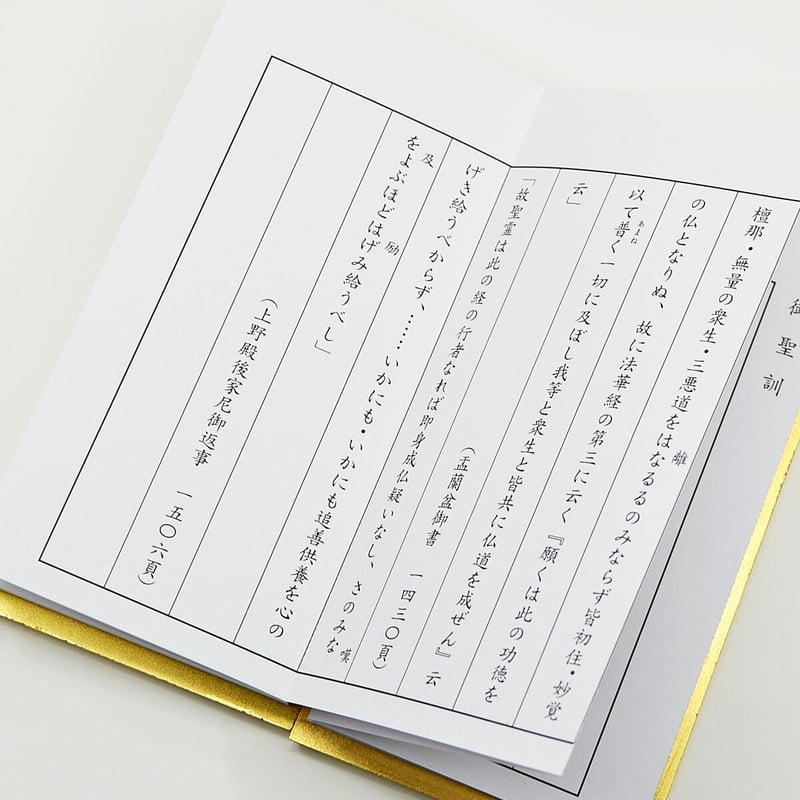 御聖訓
離
檀那・無量の衆生・三悪道をはなるるのみならず皆初住・妙覚
の仏となりぬ、故に法華経の第三に云く『願くは此の功徳を
あまね
以て普く一切に及ぼし我等と衆生と皆共に仏道を成ぜん』云
云」 (盂蘭盆御書 一四三〇頁)
嘆
「故聖霊は此の経の行者なれば即身成仏疑いなし、さのみな
げき給うべからず、……いかにも・いかにも追善供養を心の
及 励
をよぶほどはげみ給うべし」
(上野殿後家尼御返事 一五〇六頁)